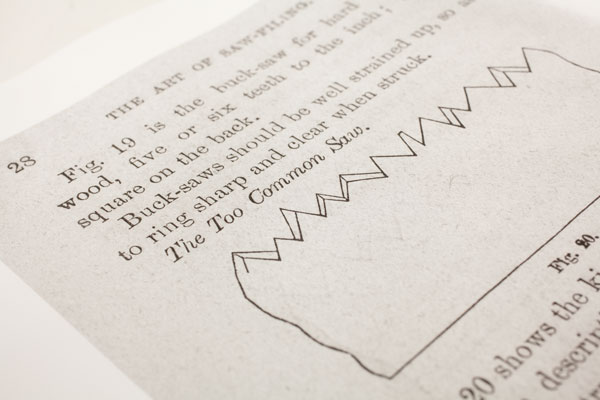 28
THE ART OF SAW-FILING.
Fig. 19 is the buck-saw for hard
wood, five or six teeth to the inch;
square on the back.
Buck-saws should be well strained up, so as
to ring sharp and clear when struck.
The Too Common Saw.
Fig. 20.
20 shows the